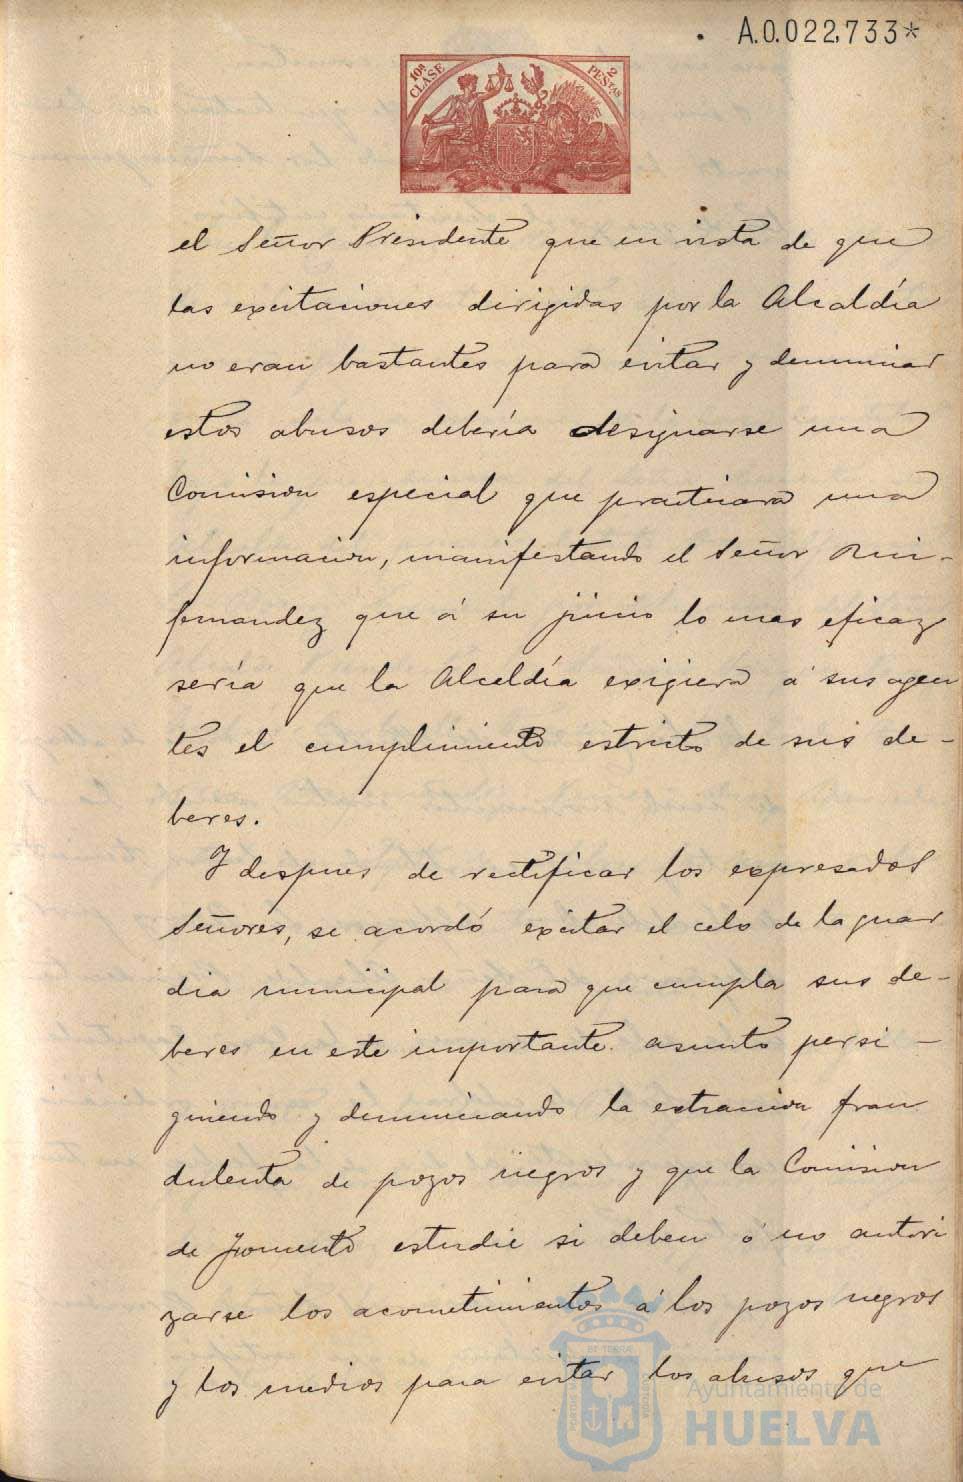 A.0.022,733*
10ª CLASE 2 PESETAS
el Señor Presidente que en vista de que
las excitaciones dirigidas por la Alcaldía
no eran bastantes para evitar y denunciar
estos abusos debería designarse una
Comision especial que practicara una
informacion, manifestando el Señor
fernandez que á su juicio lo mas eficaz
sería que la Alcaldía exigiera á sus agen
tes el cumplimiento estricto de sus de-
beres.
Y despues de rectificar los expresados
Señores, se acordó excitar el celo de la guar
dia municipal para que cumpla sus de-
beres en este importante asunto persi-
guiendo y denunciando la extraccion frau
dulenta de pozos negros y que la Comision
de fomento estudie si deben ó no autori
zarse los acometimientos á los pozos negros
y los medios para evitar los abusos que
Ayuntamiento de
HUELVA